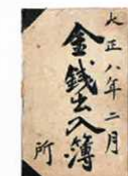 大正八年二月
金銭出入簿
所